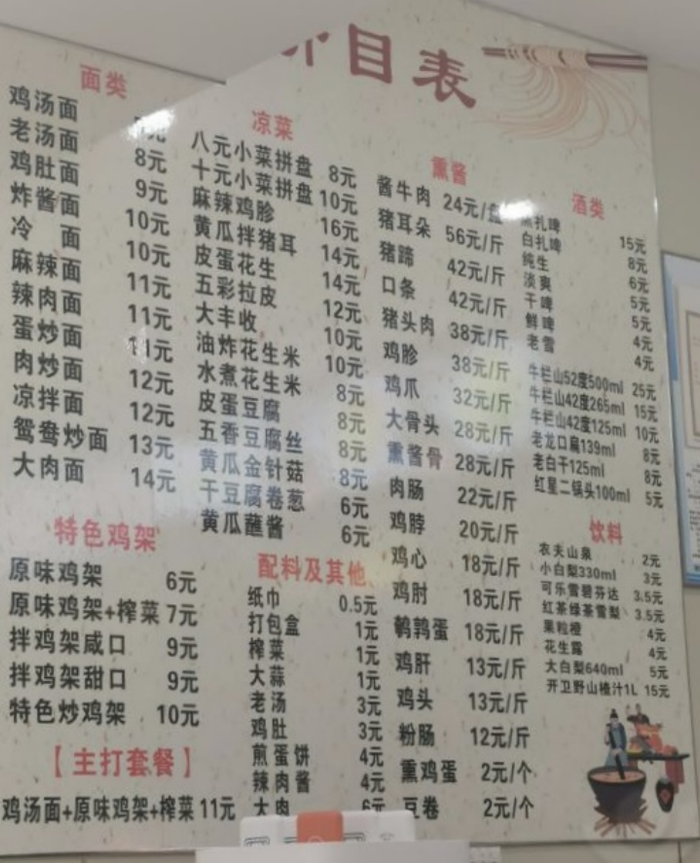 目表
面类
鸡汤面 元
老汤面 8元
鸡肚面 9元
炸酱面 10元
冷 面 10元
麻辣面 11元
辣肉面 11元
蛋炒面 元
肉炒面 12元
凉拌面 12元
鸳鸯炒面 13元
大肉面 14元
特色鸡架
原味鸡架 6元
原味鸡架+榨菜 7元
拌鸡架咸口 9元
拌鸡架甜口 9元
特色炒鸡架 10元
【主打套餐】
鸡汤面+原味鸡架+榨菜 11元
凉菜
八元小菜拼盘 8元
十元小菜拼盘 10元
麻辣鸡胗 16元
黄瓜拌猪耳 14元
皮蛋花生 14元
五彩拉皮 12元
大丰收 10元
油炸花生米 10元
水煮花生米 8元
皮蛋豆腐 8元
五香豆腐丝 8元
黄瓜金针菇 8元
干豆腐卷葱 6元
黄瓜蘸酱 6元
配料及其他
纸巾 0.5元
打包盒 1元
榨菜 1元
大蒜 1元
老汤 3元
鸡肚 3元
煎蛋饼 4元
辣肉酱 4元
大肉 6元
熏酱
酱牛肉 24元/盘
猪耳朵 56元/斤
猪蹄 42元/斤
口条 42元/斤
猪头肉 38元/斤
鸡胗 38元/斤
鸡爪 32元/斤
大骨头 28元/斤
熏酱骨 28元/斤
肉肠 22元/斤
鸡脖 20元/斤
鸡心 18元/斤
鸡肘 18元/斤
鹌鹑蛋 18元/斤
鸡肝 13元/斤
鸡头 13元/斤
粉肠 12元/斤
熏鸡蛋 2元/个
豆卷 2元/个
酒类
黑扎啤 15元
白扎啤 8元
纯生 6元
淡爽 5元
干啤 5元
鲜啤 4元
老雪 4元
牛栏山52度500ml 25元
牛栏山42度265ml 15元
牛栏山42度125ml 10元
老龙口扁139ml 8元
老白干125ml 8元
红星二锅头100ml 5元
饮料
农夫山泉 2元
小白梨330ml 3元
可乐雪碧芬达 3.5元
红茶绿茶雪梨 3.5元
果粒橙 4元
花生露 4元
大白梨640ml 5元
开卫野山楂汁1L 15元